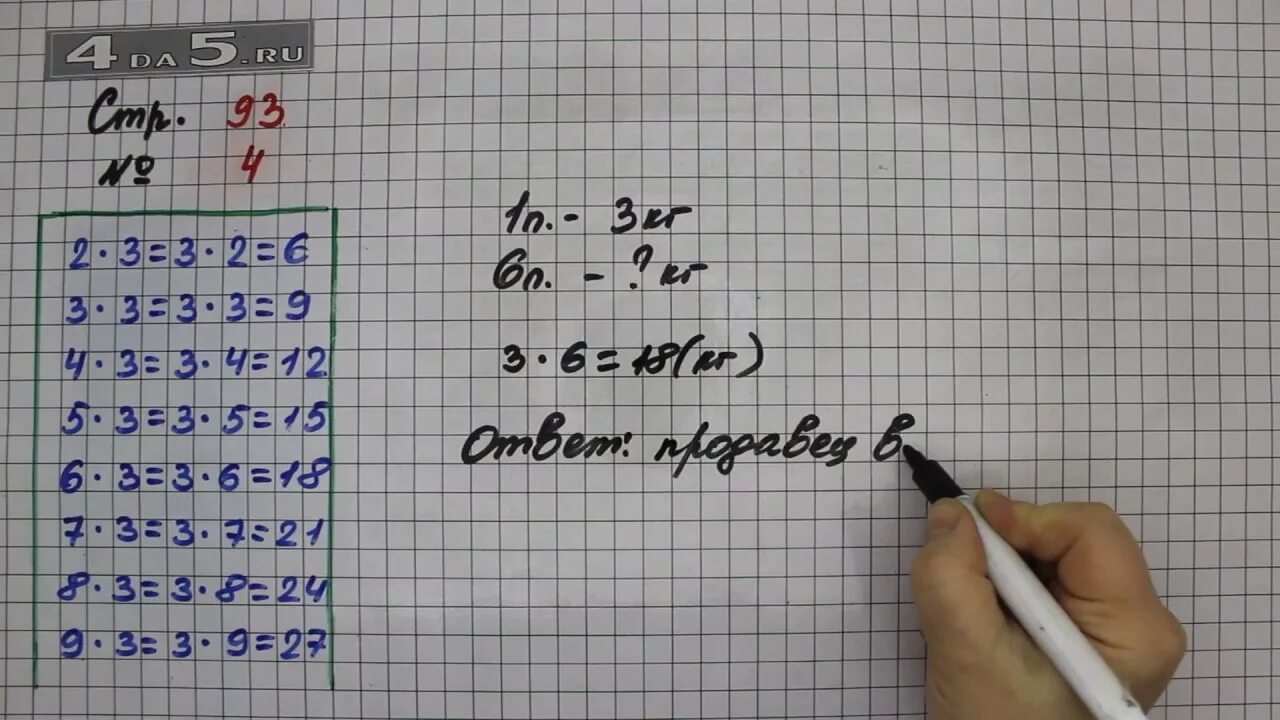 4DA5.RU
Стр. 93
№ 4
2·3=3·2=6
3·3=3·3=9
4·3=3·4=12
5·3=3·5=15
6·3=3·6=18
7·3=3·7=21
8·3=3·8=24
9·3=3·9=27
1п. - 3кг
6п. - ?кг
3·6=18(кг)
Ответ: продавец в